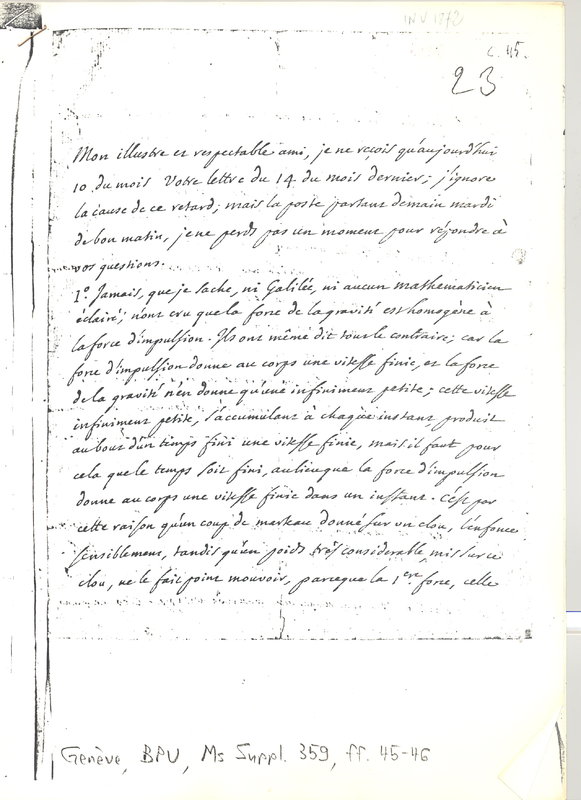 INV. 1272
c. 45.
23
Mon illustre et respectable ami, je ne reçois qu'aujourd'hui
10 du mois votre lettre du 14 du mois dernier; j'ignore
la cause de ce retard; mais la poste partant demain mardi
de bon matin, je ne perds pas un moment pour répondre à
vos questions.
1º. Jamais, que je sache, ni Galilée, ni aucun mathematicien
éclairé, n'ont cru que la force de la gravité est homogène à
la force d'impulsion. Ils ont même dit tout le contraire; car la
force d'impulsion donne au corps une vitesse finie, et la force
de la gravité n'en donne qu'une infiniment petite; cette vitesse
infiniment petite, s'accumulant à chaque instant, produit
au bout d'un temps fini une vitesse finie, mais il faut pour
cela que le temps soit fini, aulieuque la force d'impulsion
donne au corps une vitesse finie dans un instant. C'est par
cette raison qu'un coup de marteau donné sur un clou, l'enfonce
sensiblement, tandis qu'un poids très considerable, mis sur ce
clou, ne le fait point mouvoir, parceque la 1ere. force, celle
Genève, BPU, Ms Suppl. 359, ff. 45-46